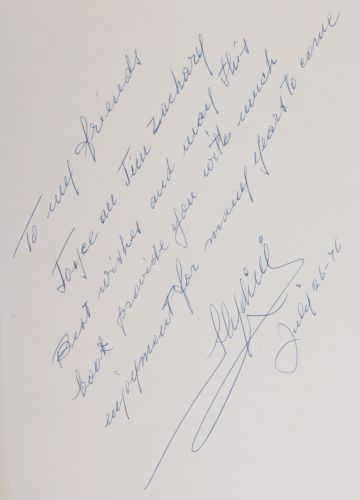 To my friends
Joyce an Jim Zachary
Best wishes and may this
book provide you with much
enjoyment for many years to come
July 26-76